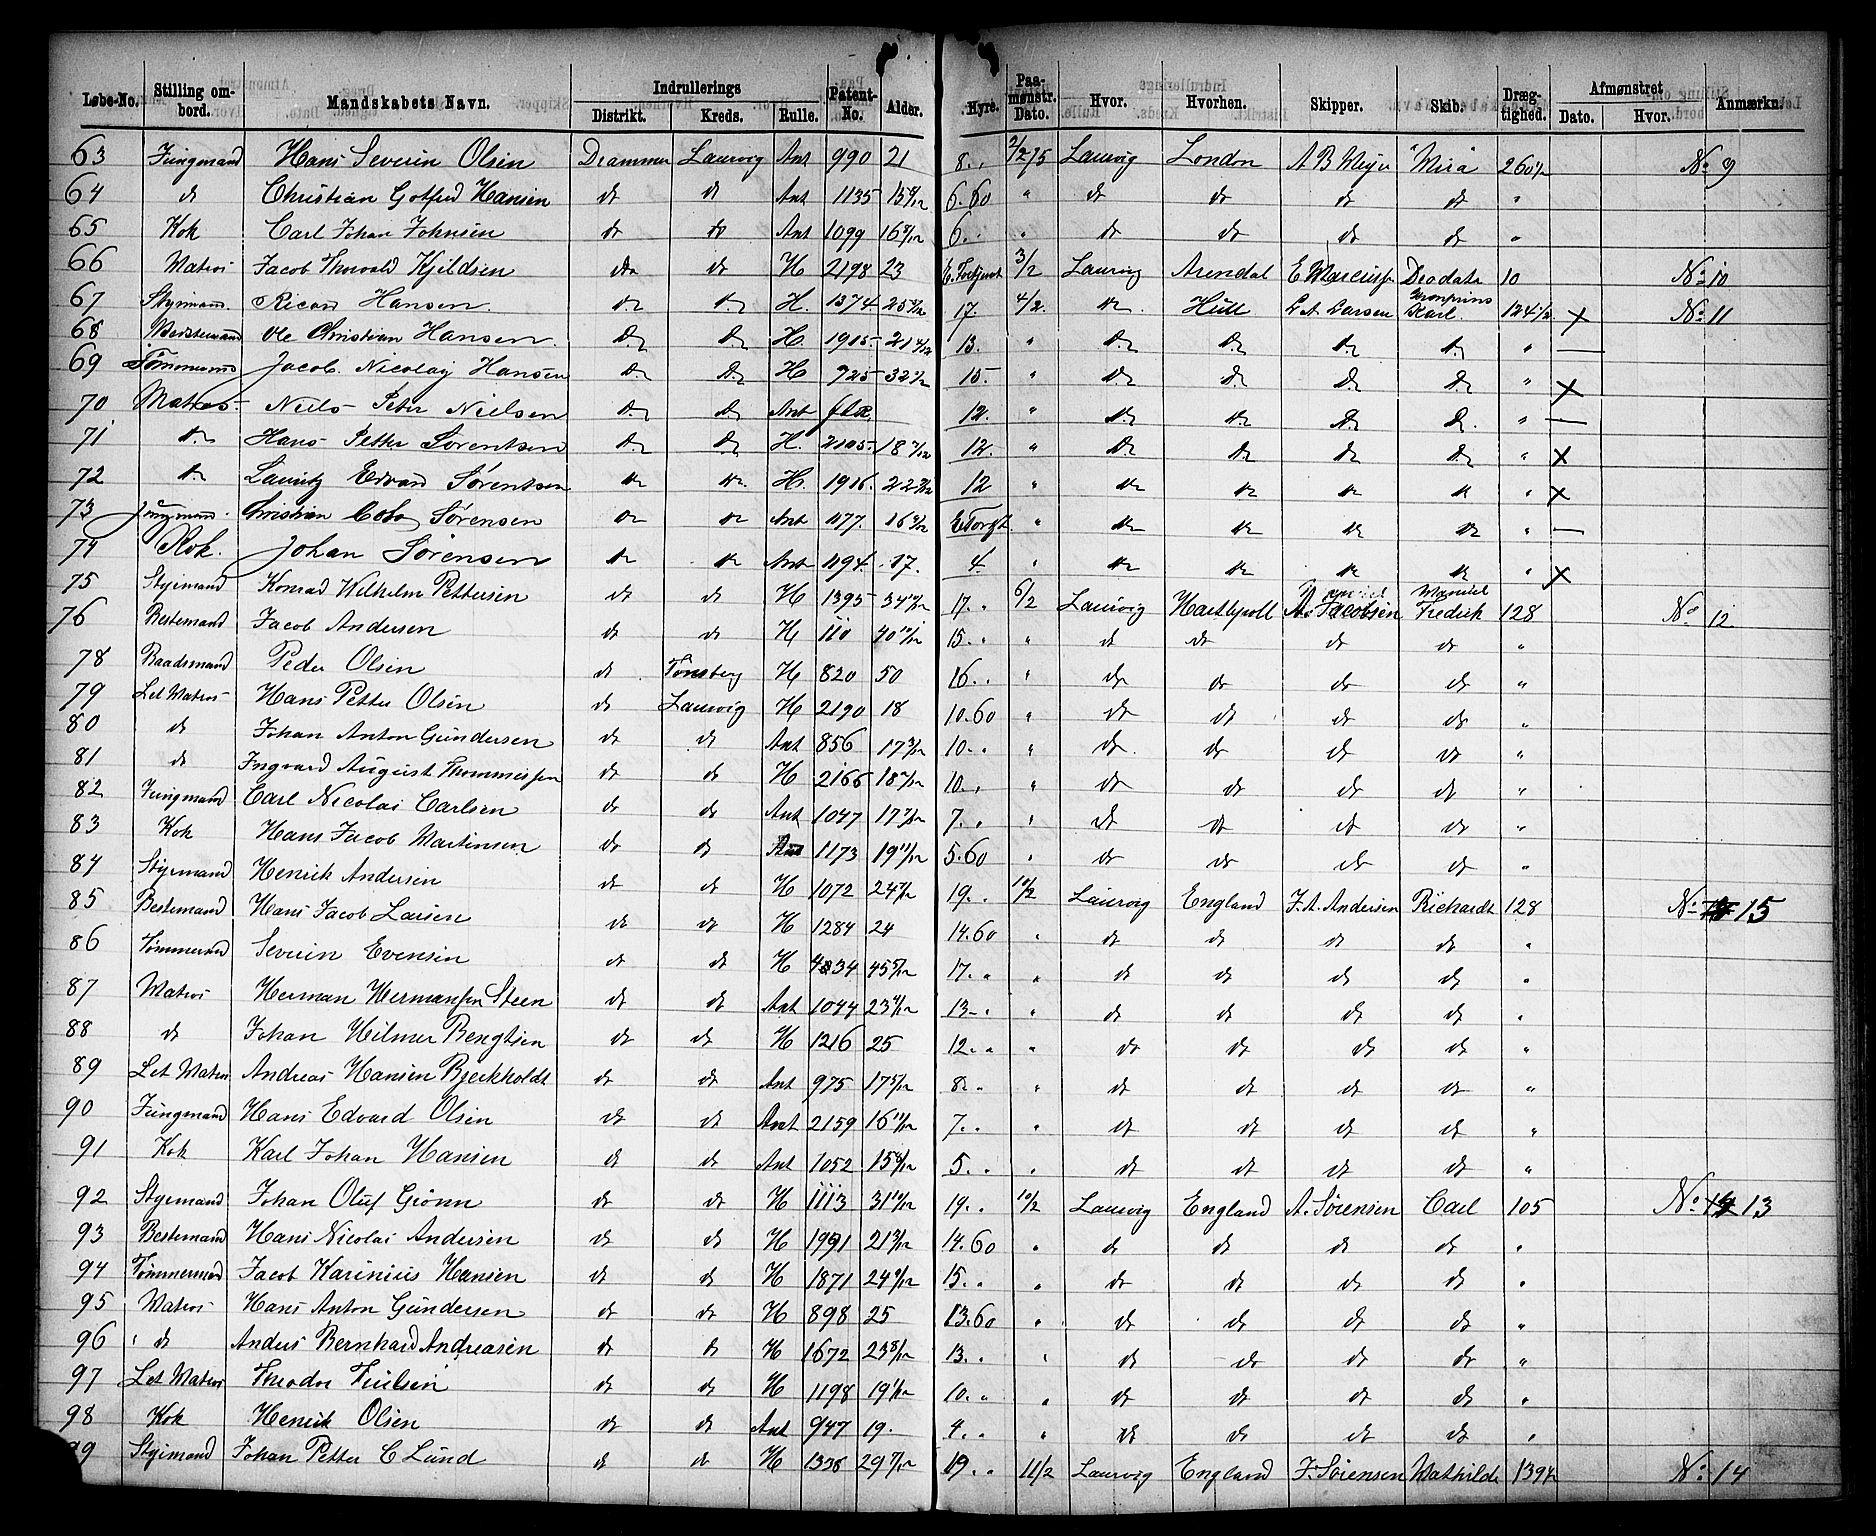 Løbe-No. | Stilling om-bord. | Mandskabets Navn. | Indrullerings Distrikt. | Kreds. | Rulle. | Patent-No. | Alder. | Hyre. | Paa-mønstr. Dato. | Hvor. | Hvorhen. | Skipper. | Skib. | Dræg-tighed. | Afmønstret Dato. | Hvor. | Anmærkn.
63 Jungmand Hans Severin Olsen Drammen Laurvig Ant 990 21 8. 2/2 75 Laurvig London A B Meyer "Mira" 260½ No 9
64 do Christian Gotfred Hansen do do Ant 1135 15 6.60 " do do do do "
65 Kok Carl Johan Johnsen do do Ant 1099 16 8/12 6. " do do do do "
66 Matros Jacob Thorvald Kjeldsen do do H 2198 23 3/2 Laurvig Arendal E Marcussen Deodata 10 No 10
67 Styrmand Ricard Hansen do do H. 1374 25 17. 4/2 do Hull L A Larsen Kronprins Karl 124½ x No 11
68 Ole Christian Hansen do do H. 1915 21 13. " do do do do " —
69 Tømmermand Jacob Nicolay Hansen do do H 725 32 15. " do do do do " x
70 Matros Niels Peter Nielsen do do Ant 12. " do do do do " —
71 do Hans Petter Sørentsen do do H. 2105 18 12. " do do do do " x
72 do Lauritz Edvard Sørentsen do do H. 1916 22 12 " do do do do " x
73 Jungmand Christian Sørensen do do Ant 1177 16 " do do do do " —
74 Kok. Johan Sørensen do do Ant 1194 17. 4. " do do do do " x
75 Styrmand Konrad Wilhelm Pettersen do do H 1395 34 17. 6/2 Laurvig Hartlepoll A. Jacobsen Fredrik 128 No 12
76 Bestemand Jacob Andersen do do H 110 40 15. " do do do do "
78 Baadsmand Peder Olsen do Tønsberg H 820 50 16. " do do do do "
79 Let Matros Hans Petter Olsen do Laurvig H 2190 18 10.60 " do do do do "
80 do Johan Anton Gundersen do do Ant 856 17 10. " do do do do "
81 do Ingvard August Thommessen do do H 2166 18 10. " do do do do "
82 Jungmand Carl Nicolai Carlsen do do Ant 1047 17 7. " do do do do "
83 Kok Hans Jacob Martinsen do do Ant 1173 19 11/12 5.60 " do do do do "
84 Styrmand Henrik Andersen do do H 1072 24 19. 10/2 Laurvig England J. A. Andersen Richardt 128 No 15
85 Bestemand Hans Jacob Larsen do do H 1284 24 14.60 " do do do do "
86 Tømmermand Severin Evensen do do H 4834 45 17. " do do do do "
87 Matros Herman Hermansen Steen do do Ant 1044 23 13. " do do do do "
88 do Johan Hilmer Bengtsen do do H 1216 25 12. " do do do do "
89 Let Matros Andreas Hansen Bjerkholdt do do Ant 975 17 8. " do do do do "
90 Jungmand Hans Edvard Olsen do do Ant 2159 16 7. " do do do do "
91 Kok Karl Johan Hansen do do Ant 1052 15 5. " do do do do "
92 Styrmand Johan Oluf Grønn do do H 1113 31 19. 10/2 Laurvig England A. Sørensen Carl 105 No 13
93 Bestemand Hans Nicolai Andersen do do H 1991 21 14.60 " do do do do "
94 Tømmermand Jacob Karinius Hansen do do H 1871 24 15. " do do do do "
95 Matros Hans Anton Gundersen do do H 898 25 13.60 " do do do do "
96 do Anders Bernhard Andreasen do do H 1672 23 13. " do do do do "
97 Let Matros Theodor Juelsen do do H 1198 19 10. " do do do do "
98 Kok Henrik Olsen do do Ant 947 19. 4. " do do do do "
99 Styrmand Johan Petter C Lund do do H 1336 29 19. 11/2 Laurvig England J. Sørensen Mathilde 139½ No 14